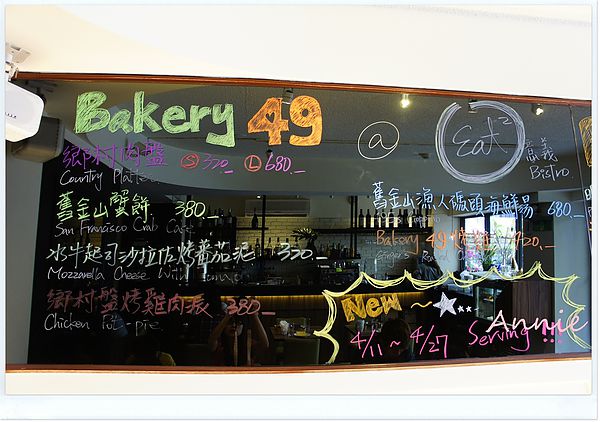 Bakery 49 @ Eat² 
意義
Bistro
鄉村肉盤 Ⓢ320_ Ⓛ680_
Country Platter
舊金山蟹餅 380_
San Francisco Crab Cake
水牛起司沙拉佐烤蕃茄泥 320_
Mozzarella Cheese with
鄉村盤烤雞肉派 380_
Chicken Pot-pie
舊金山漁人碼頭海鮮湯 680_
Cioppino
Bakery 49 烤雞 420_
Roast
New ~ ★...
4/11 ~ 4/27 Serving!!!
Annie